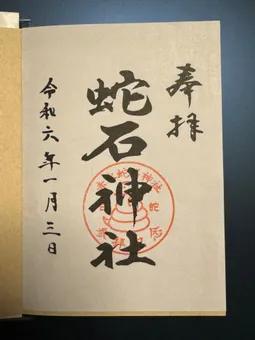 奉拝
蛇石神社
令和六年一月三日